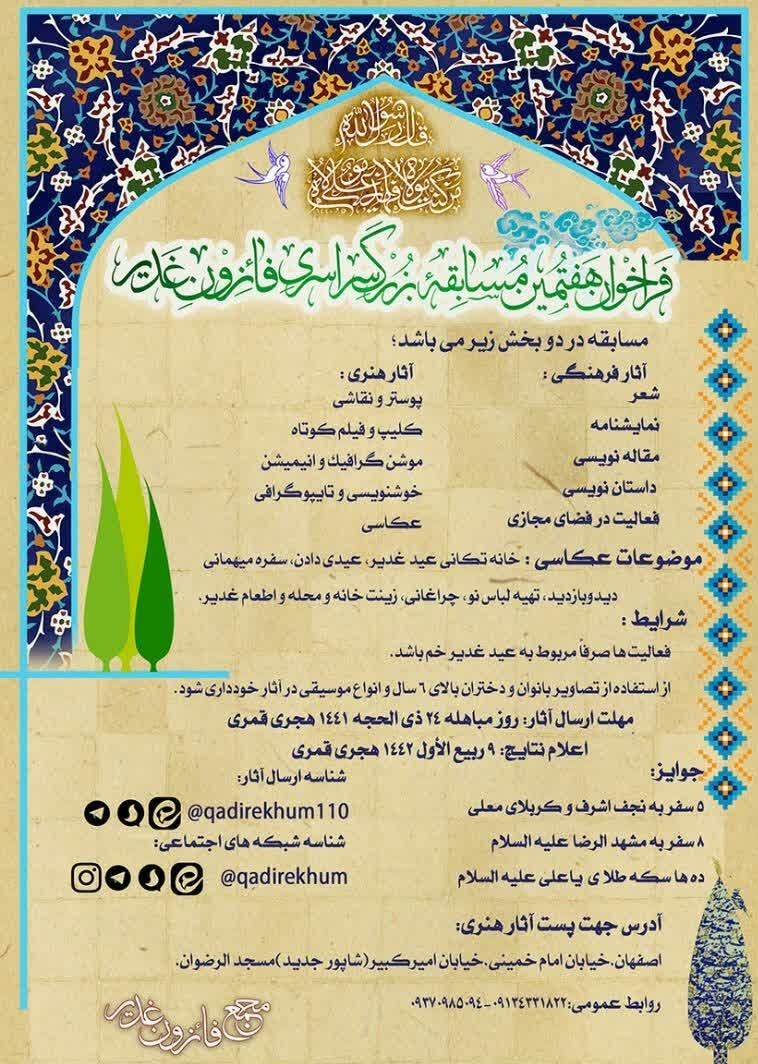 قال رسول الله
من كنت مولاه فهذا علی مولاه
فراخوان هفتمین مسابقهٔ بزرگ سراسری فائزون غدیر
مسابقه در دو بخش زیر می باشد؛
آثار فرهنگی :
شعر
نمایشنامه
مقاله نویسی
داستان نویسی
فعالیت در فضای مجازی
آثار هنری :
پوستر و نقاشی
کلیپ و فیلم کوتاه
موشن گرافیك و انیمیشن
خوشنویسی و تایپوگرافی
عکاسی
موضوعات عکاسی : خانه تکانی عید غدیر، عیدی دادن، سفره میهمانی
دیدوبازدید، تهیه لباس نو، چراغانی، زینت خانه و محله و اطعام غدیر.
شرایط :
فعالیت ها صرفاً مربوط به عید غدیر خم باشد.
از استفاده از تصاویر بانوان و دختران بالای ٦ سال و انواع موسیقی در آثار خودداری شود.
مهلت ارسال آثار: روز مباهله ٢٤ ذی الحجه ١٤٤١ هجری قمری
اعلام نتایج: ٩ ربیع الأول ١٤٤٢ هجری قمری
جوایز:
٥ سفر به نجف اشرف و کربلای معلی
٨ سفر به مشهد الرضا علیه السلام
ده ها سکه طلا ی یاعلی علیه السلام
شناسه ارسال آثار:
@qadirekhum110
شناسه شبکه های اجتماعی:
@qadirekhum
آدرس جهت پست آثار هنری:
اصفهان.خیابان امام خمینی.خیابان امیرکبیر(شاپور جدید)مسجد الرضوان.
روابط عمومی:٠٩١٣٤٣٣١٨٢٢-٠٩٣٧٠٩٨٥٠٩٤
مجمع فائزون غدیر